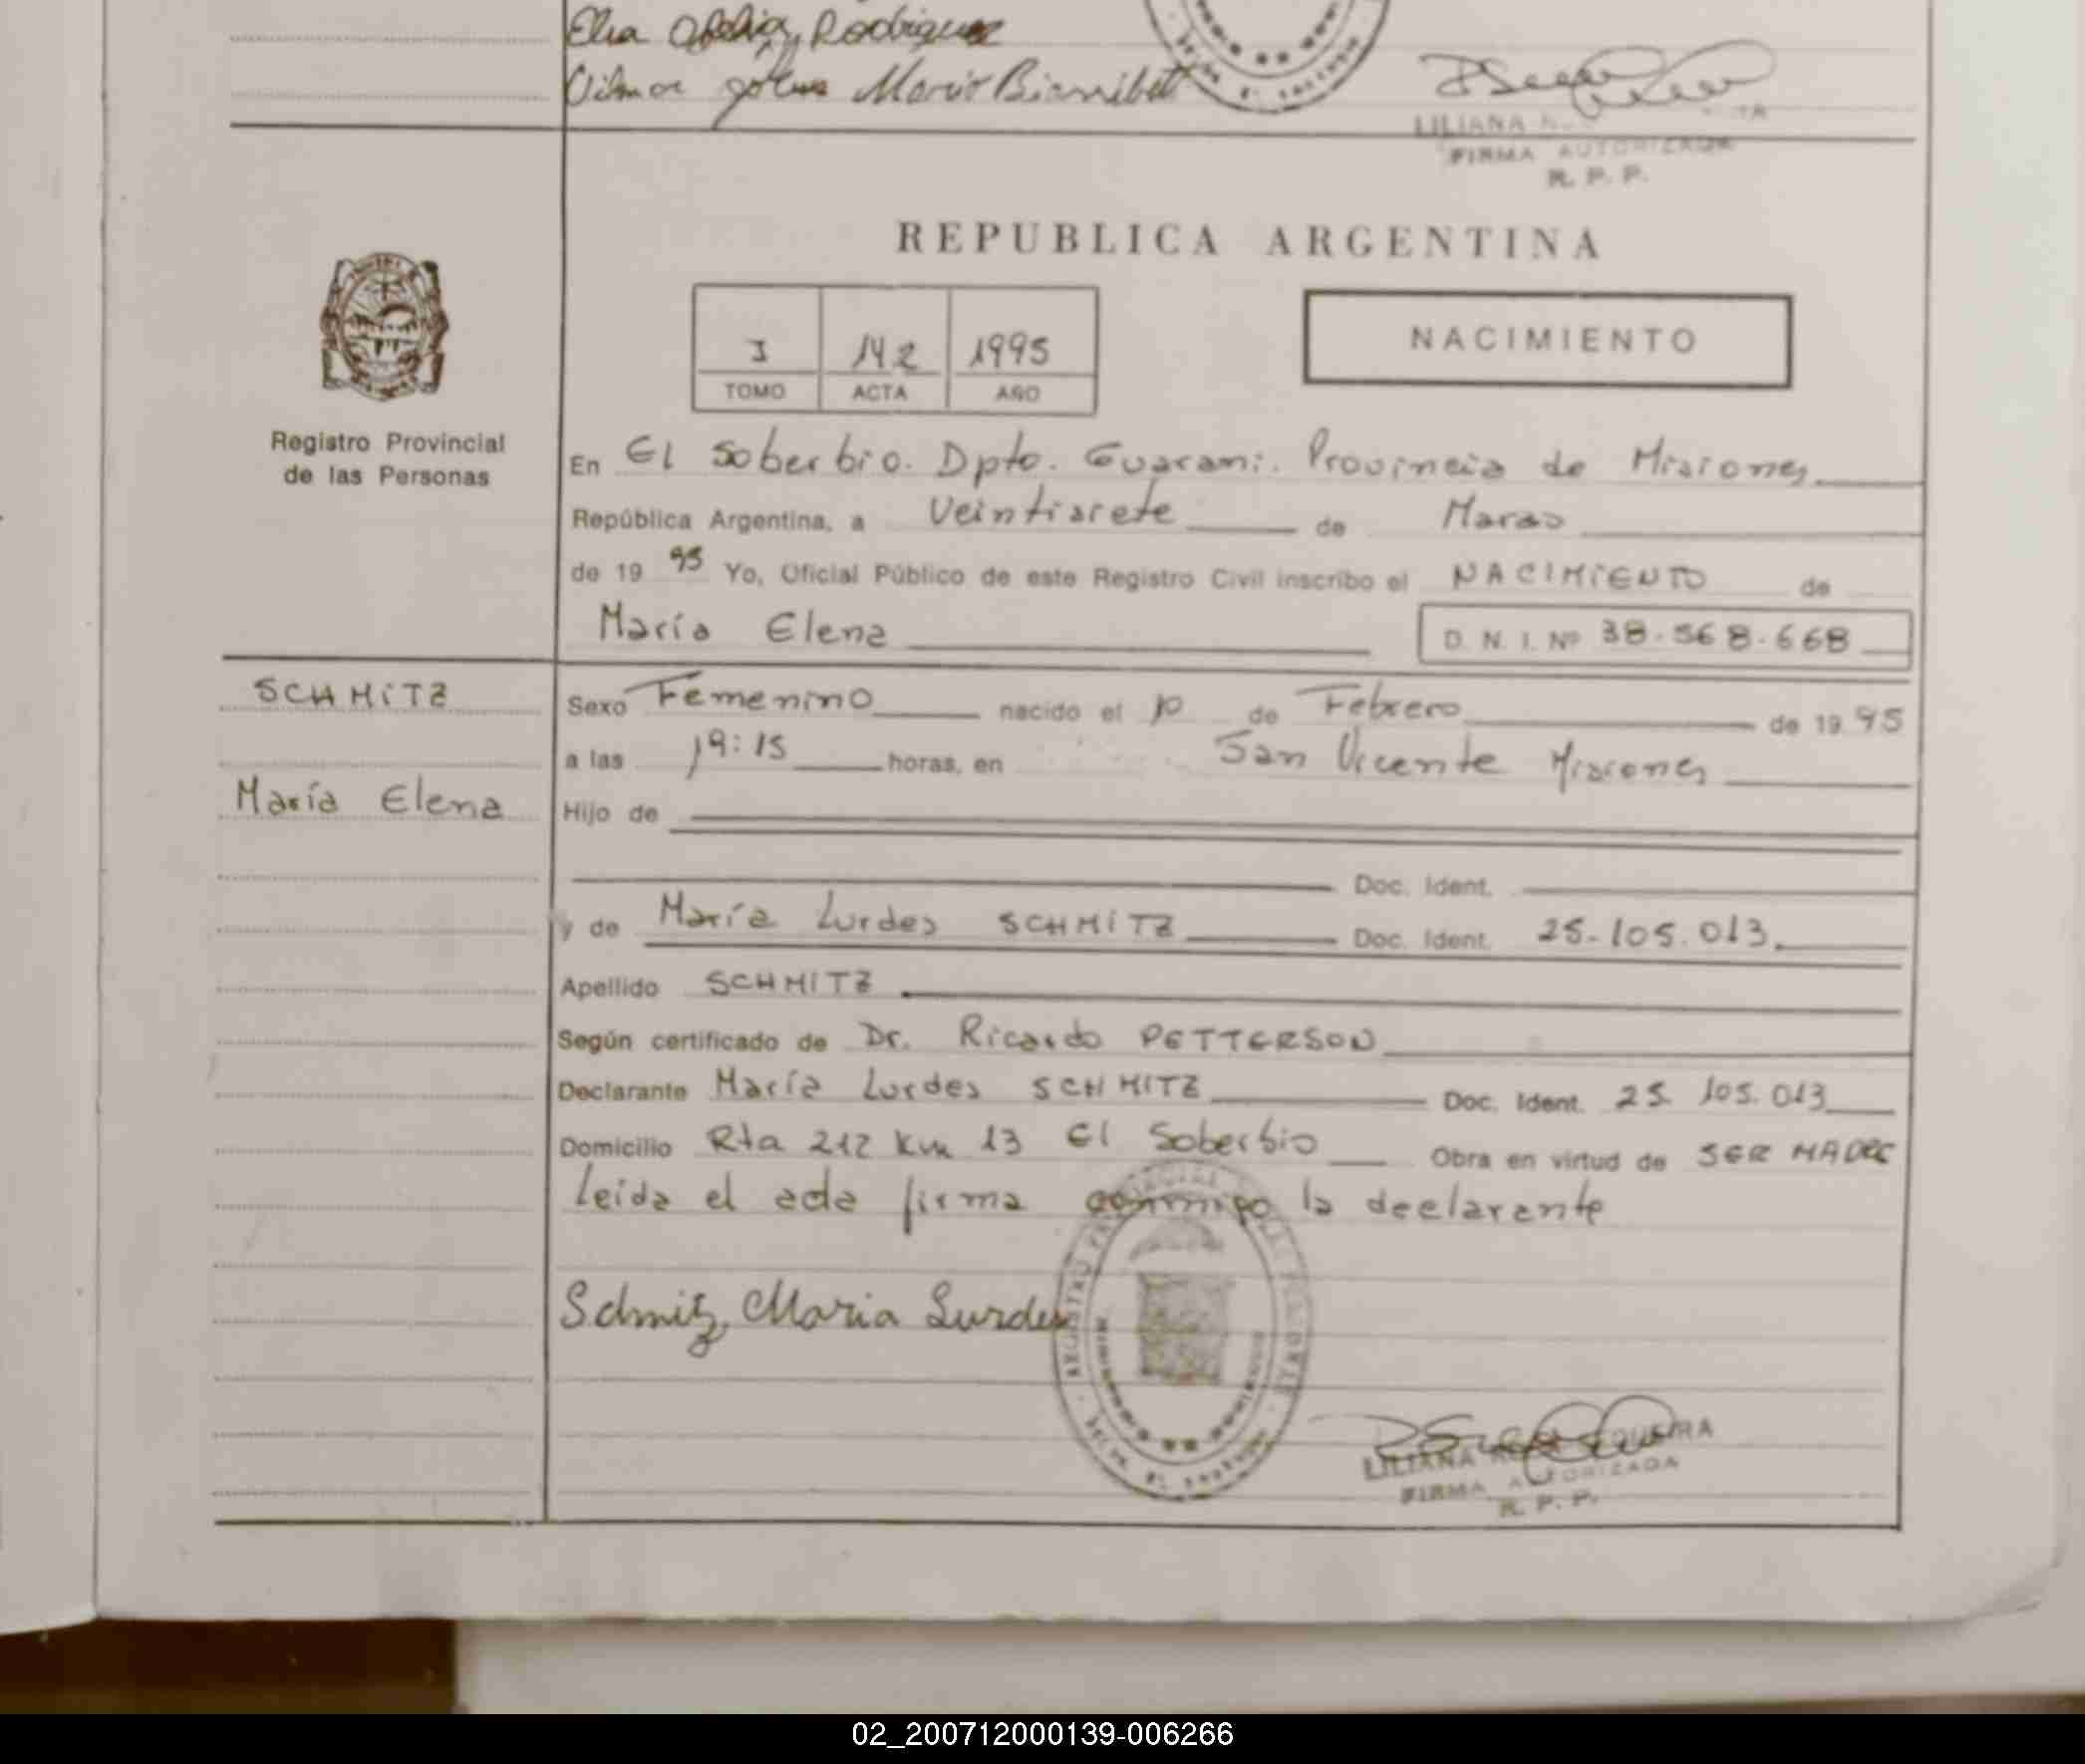 Elsa Ofelia Rodriguez
LILIANA
FIRMA AUTORIZADA
R. P. P.
REPUBLICA ARGENTINA
I 142 1995
TOMO ACTA AÑO
NACIMIENTO
Registro Provincial
de las Personas
En El Soberbio. Dpto. Guarani. Provincia de Misiones
República Argentina, a Veintisiete de Marzo
de 19 95 Yo, Oficial Público de este Registro Civil inscribo el NACIMIENTO de
María Elena D. N. I. Nº 38.568.668
SCHMITZ
María Elena
Sexo Femenino nacido el 10 de Febrero de 19 95
a las 19:15 horas, en San Vicente Misiones
Hijo de
Doc. Ident.
y de María Lurdes SCHMITZ Doc. Ident. 25.105.013.
Apellido SCHMITZ
Según certificado de Dr. Ricardo PETTERSON
Declarante María Lurdes SCHMITZ Doc. Ident. 25.105.013
Domicilio Rta 212 Km 13 El Soberbio Obra en virtud de SER MADRE
Leida el acta firma conmigo la declarante
Schmitz, Maria Lurdes
LILIANA SEQUEIRA
FIRMA AUTORIZADA
R. P. P.
02_200712000139-006266